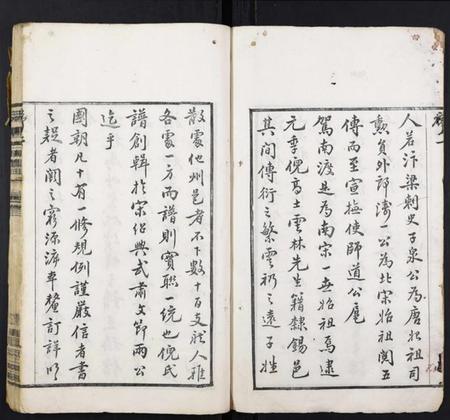 人若汴梁刺史子泉公為唐始祖司
勳員外郎濤一公為北宋始祖閱五
傳而至宣撫使師道公扈
駕南渡是為南宋一世始祖焉逮
元季倪高士雲林先生籍隸錫邑
其間傳衍之繁雲礽之遠子姓
散處他州邑者不下數十百支雖人雖
各處一方而譜則實聯一統也倪氏
譜創輯於宋紹興武肅文節兩公
迄乎
國朝凡十有一修規例謹嚴信者書
之疑者闕之窮源溯本釐訂詳明